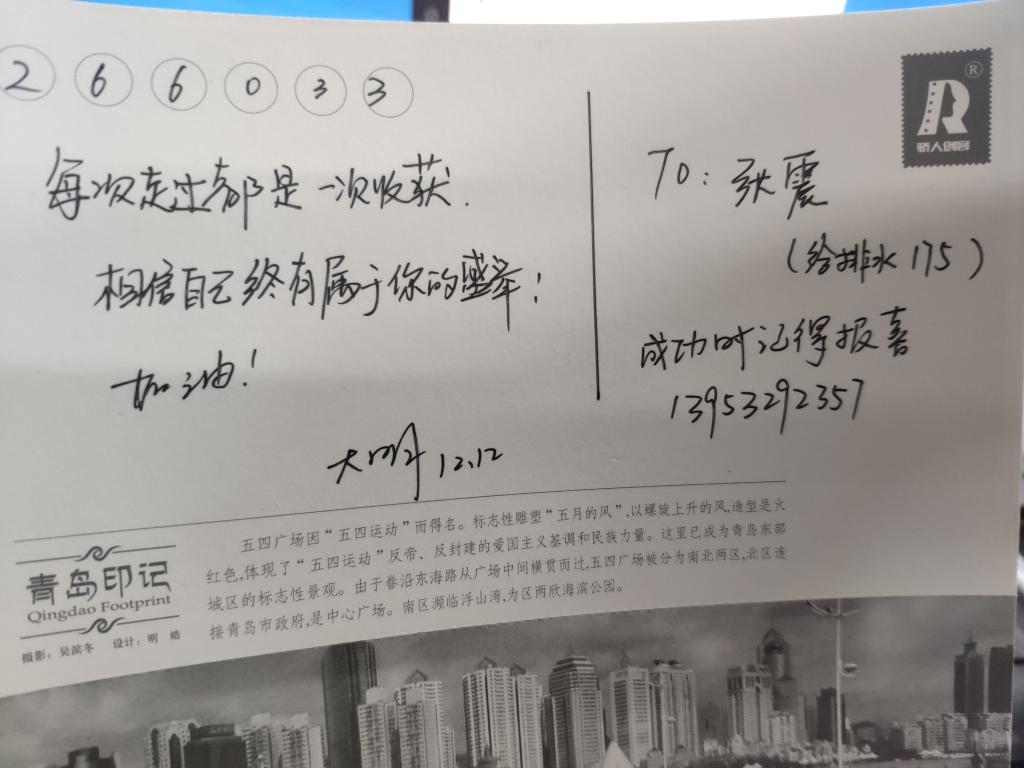 266033
每次走过都是一次收获.
相信自己终有属于你的盛举!
加油!
大明 12.12
TO: 张震
(给排水175)
成功时记得报喜
13953292357
R®
骄人创客
青岛印记
Qingdao Footprint
摄影:吴滨冬 设计:明 皓
五四广场因“五四运动”而得名。标志性雕塑“五月的风”,以螺旋上升的风,造型是火
红色,体现了“五四运动”反帝、反封建的爱国主义基调和民族力量。这里已成为青岛东部
城区的标志性景观。由于香沿东海路从广场中间横贯而过,五四广场被分为南北两区,北区连
接青岛市政府,是中心广场。南区濒临浮山湾,为区两欣海滨公园。